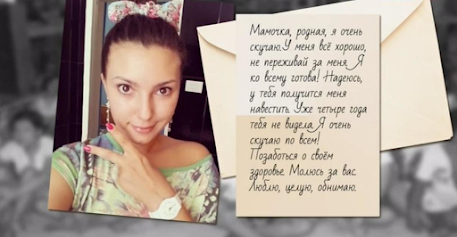 Мамочка, родная, я очень
скучаю.У меня всё хорошо,
не переживай за меня. Я
ко всему готова! Надеюсь,
у тебя получится меня
навестить. Уже четыре года
тебя не видела. Я очень
скучаю по всем!
Позаботься о своём
здоровье. Молюсь за вас.
Люблю, целую, обнимаю.